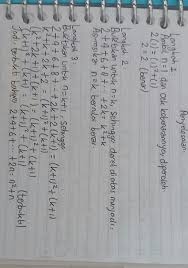 Penyelesaian
Langkah 1
Ambil n=1 dan cek kebenarannya diperoleh
2 = (1)² + 1
2 = 2 (benar)
Langkah 2
Buktikan untuk n=k, sehingga deret diatas menjadi,
2+4+6+8+...+2k = k²+k
Asumsi n=k bernilai benar
Langkah 3
Buktikan untuk n=k+1, sehingga
2+4+6+8+...+2k+2(k+1) = (k+1)²+(k+1)
k²+k+2(k+1) = (k+1)²+(k+1)
(k²+2k+1)+(k+1) = (k+1)²+(k+1)
(k+1)²+(k+1) = (k+1)²+(k+1) (terbukti)
Jadi terbukti bahwa 2+4+6+...+2n = n²+n